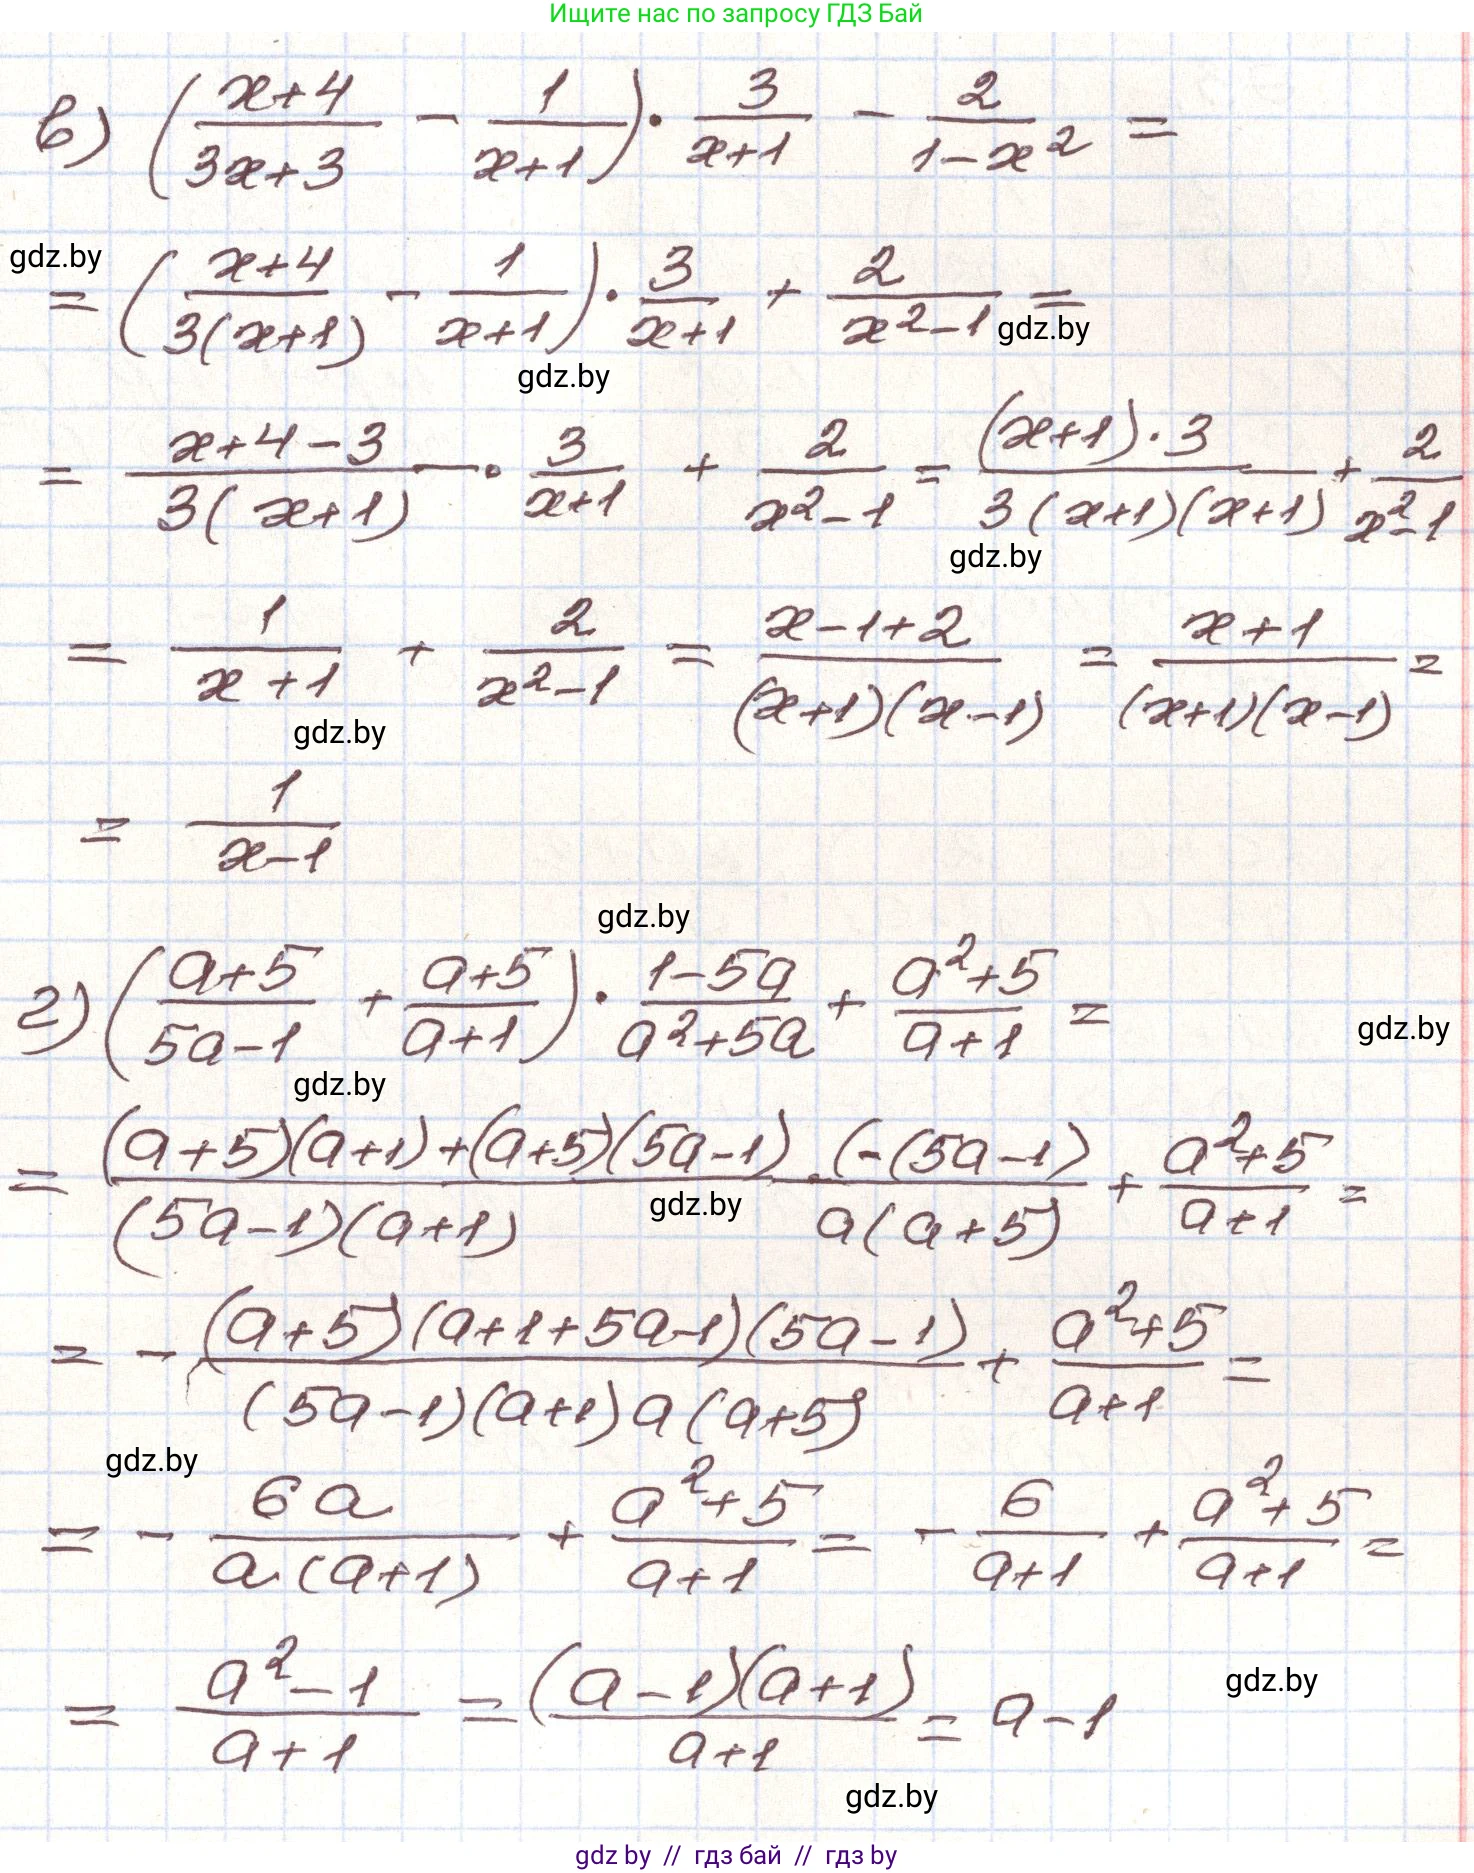 Ищите нас по запросу ГДЗ Бай
в) ((x+4)/(3x+3) - 1/(x+1)) · 3/(x+1) - 2/(1-x²) =
gdz.by
= ((x+4)/(3(x+1)) - 1/(x+1)) · 3/(x+1) + 2/(x²-1) =
gdz.by
gdz.by
= (x+4-3)/(3(x+1)) · 3/(x+1) + 2/(x²-1) = ((x+1)·3)/(3(x+1)(x+1)) + 2/(x²-1)
gdz.by
= 1/(x+1) + 2/(x²-1) = (x-1+2)/((x+1)(x-1)) = (x+1)/((x+1)(x-1)) =
gdz.by
= 1/(x-1)
gdz.by
г) ((a+5)/(5a-1) + (a+5)/(a+1)) · (1-5a)/(a²+5a) + (a²+5)/(a+1) =
gdz.by
gdz.by
= ((a+5)(a+1)+(a+5)(5a-1))/((5a-1)(a+1)) · (-(5a-1)/(a(a+5) + (a²+5)/(a+1) =
gdz.by
= - ((a+5)(a+1+5a-1)(5a-1))/((5a-1)(a+1)a(a+5)) + (a²+5)/(a+1) =
gdz.by
= - 6a/(a(a+1)) + (a²+5)/(a+1) = - 6/(a+1) + (a²+5)/(a+1) =
= (a²-1)/(a+1) = ((a-1)(a+1))/(a+1) = a-1
gdz.by
gdz.by
gdz by // гдз бай // гдз by